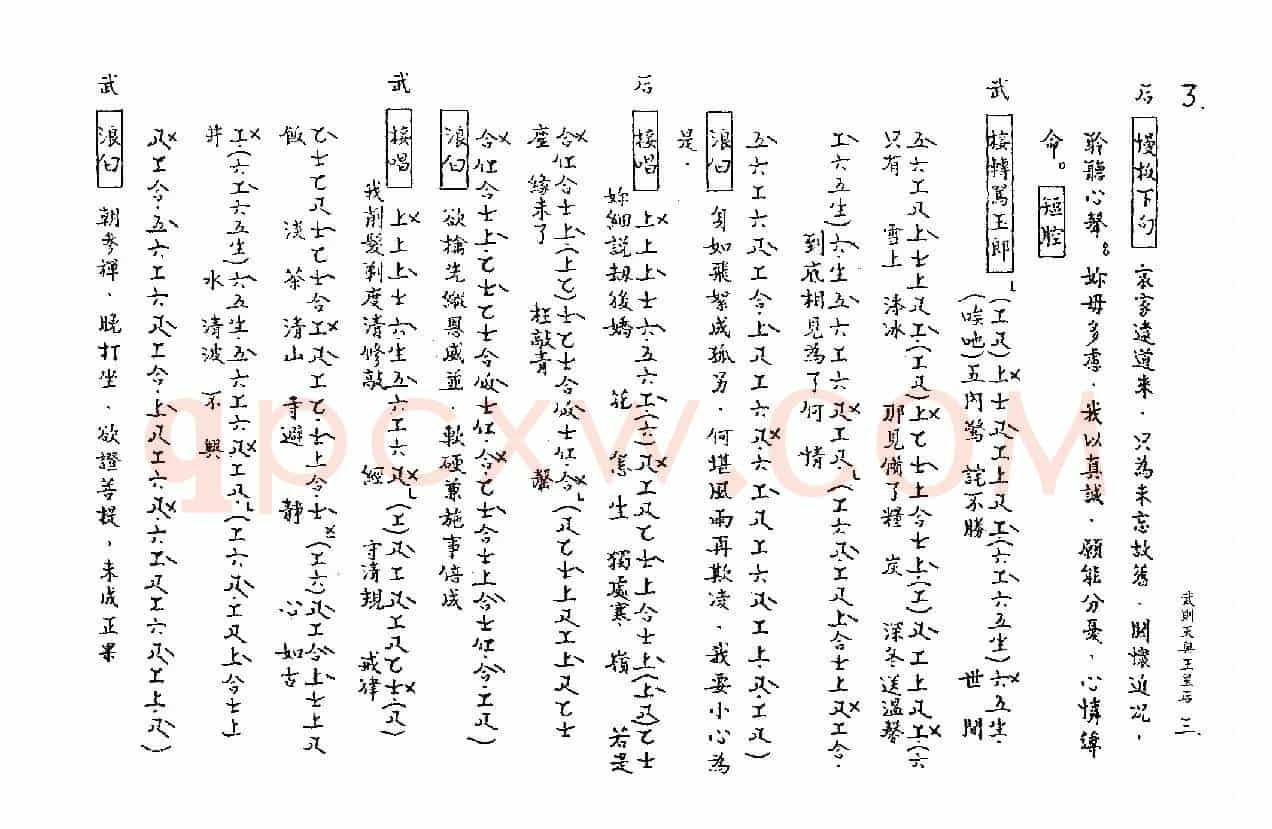 3.
武則天與王皇后 三.
后 慢板下句 哀家遠道來．只為未忘故舊．關懷近況，
聆聽心聲。妳毋多慮．我以真誠．願能分憂，心情綽
命。 短腔
武 接轉罵玉郎 (工尺)上士尺工上尺工(六工六五生)六五生．
(唉吔)五內驚 詫不勝 世 間
五六工尺上士上尺工．(工尺)上乙士上合士上．(工)尺工上尺工(六
只有 雪上 凑冰 那見備了糧 炭 深冬送溫馨
工六五生)六生五六工六尺工尺(工六尺工尺上合士上尺工合．
到底相見為了何 情
五六工六尺工合．上尺工六尺．六工尺工六尺工上．尺．工尺)
浪白 身如飛絮成孤另．何堪風雨再欺凌．我要小心為
是．
后 接唱 上上上士六．五六工(六)尺工尺乙士上合士上(上尺)乙士
妳細說劫後嬌 花 怎 生 獨處寒 嶺 若是
合仜合士上(上乙)士乙士合仮士仜合(尺乙士上尺工上尺乙士
座 緣未了 枉敲青 磬
合仜合士上．乙士乙士合仮士仜．合乙士合士上合士仜．合．工尺)
浪白 欲擒先縱恩威並．軟硬兼施事倍成
武 接唱 上上上士六．生五六工六尺(工)尺工尺工尺乙士(尺
我削髮剃度清修敲 經 守清規 戒律
乙士乙尺士乙士合工尺工乙．士上合士(工六)尺工合上士上尺
飯 淡 茶 清山 寺避 靜 心 如古
工．(六工六五生)六五生．五六工六尺工尺．(工六尺．工尺上合士上
井 水 清波 不 興
尺工合．五六工六尺工合．上尺工六．尺．六工尺工六尺工上．尺)
武 浪白 朝參禪、晚打坐．欲證菩提，未成正果
qpcxw.com